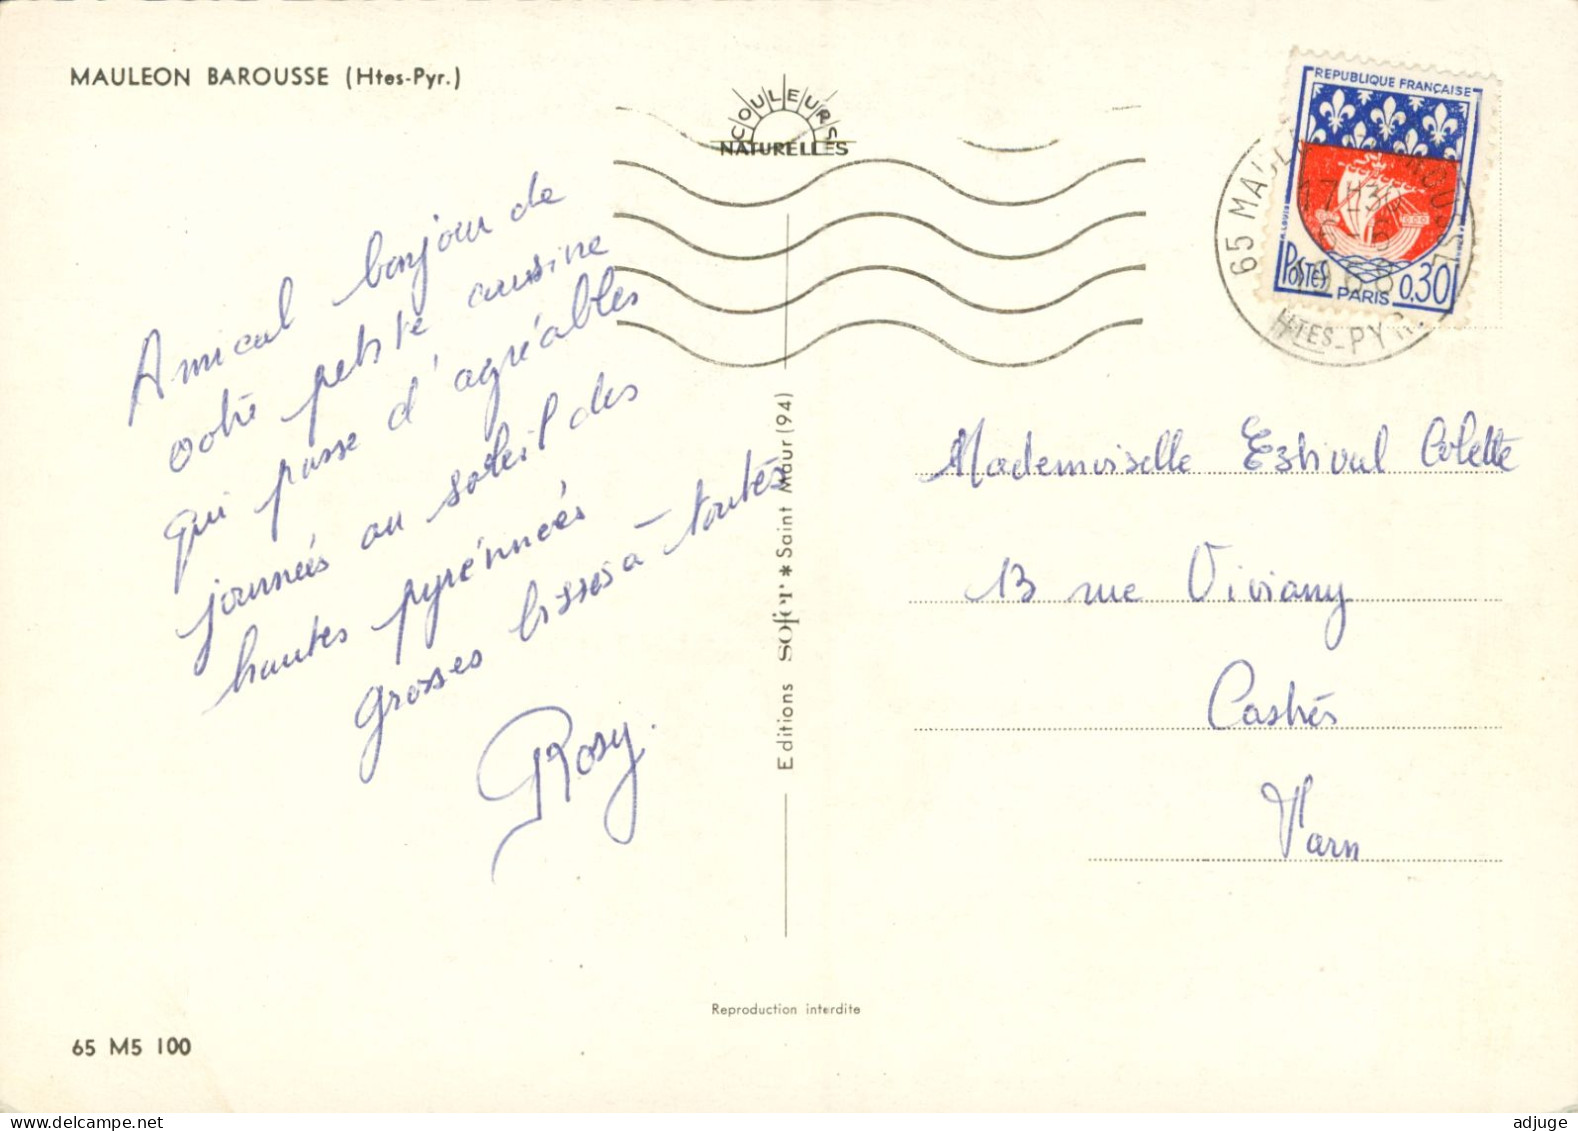 MAULEON BAROUSSE (Htes-Pyr.)
COULEURS
NATURELLES
REPUBLIQUE FRANÇAISE
POSTES
PARIS
0,30
65 MAUL ROUSSE
17H30
6-6
1966
HTES-PYR.
Amical bonjour de
votre petite cousine
qui passe d'agréables
journées au soleil des
hautes pyrénnées
grosses bisses à toutes
Rosy.
Editions sofer * Saint Maur (94)
Mademoiselle Estival Colette
13 rue Viviany
Castrés
Tarn
Reproduction interdite
65 M5 100
adjuge.com
adjuge